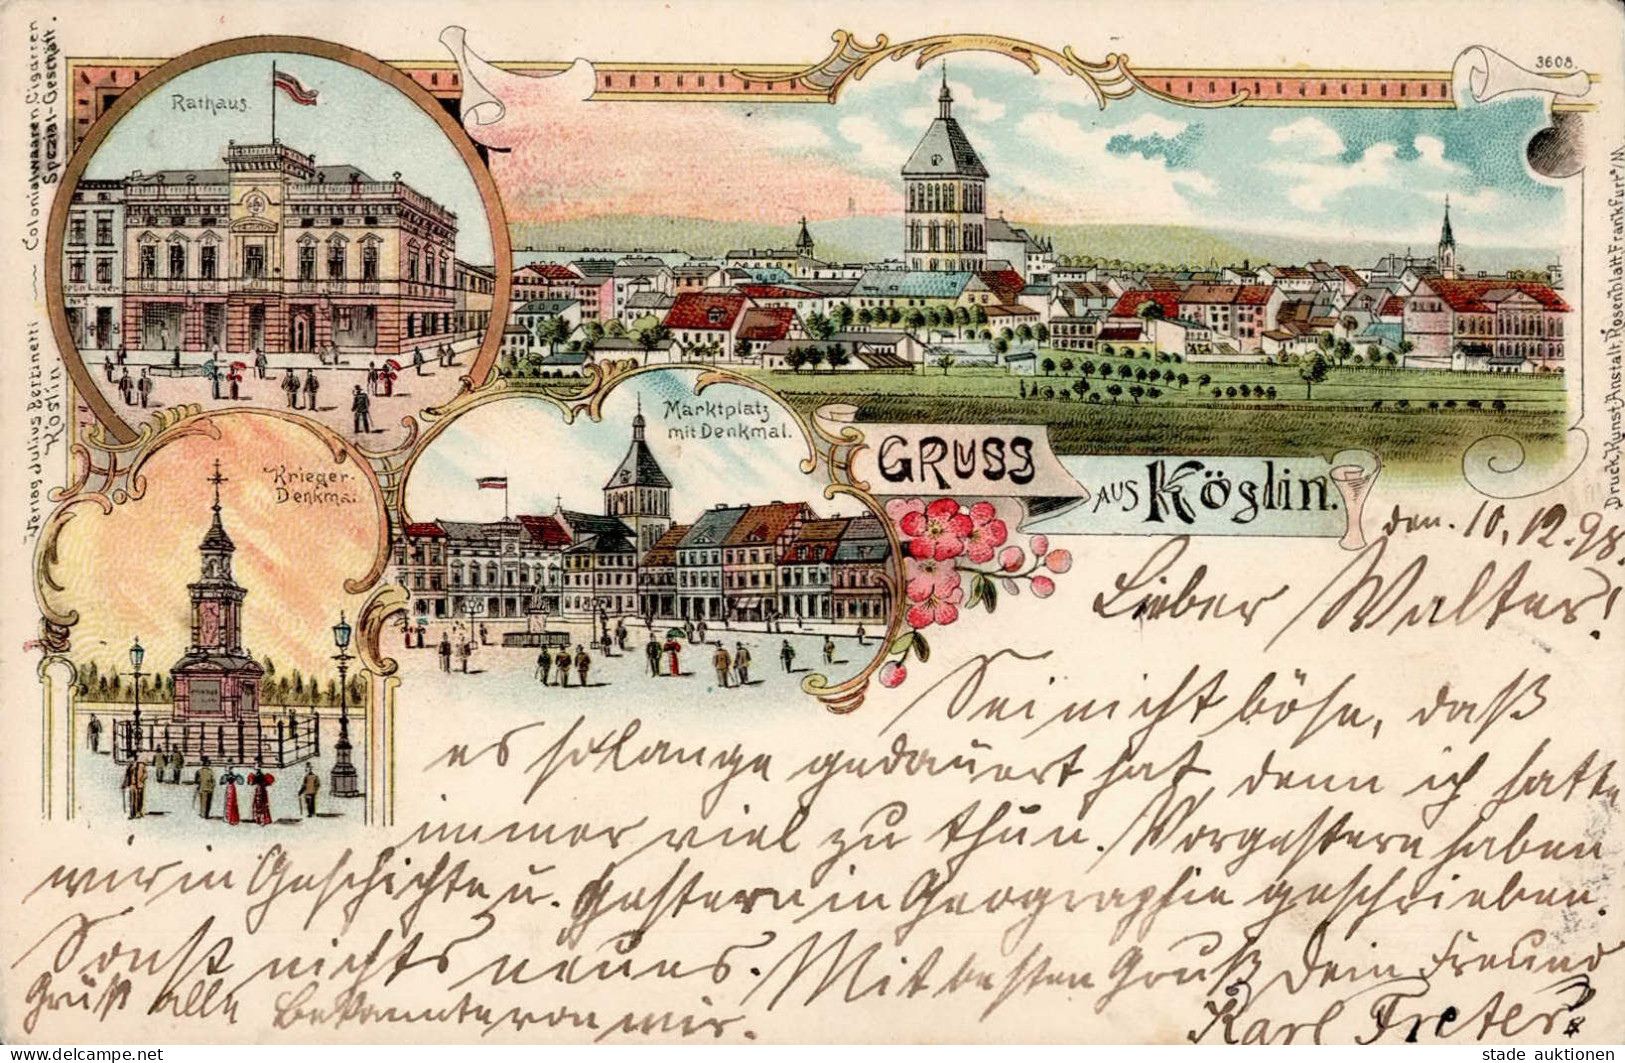 Colonialwaaren Cigarren
Spezial-Geschäft.
Verlag Julius Berenett
Köslin.
Rathaus.
3608.
Krieger-
Denkmal.
Marktplatz
mit Denkmal.
GRUSS
AUS Köslin.
Druck, Kunst Anstalt, Rosenblatt, Frankfurt a/M.
den. 10. 12. 98.
Lieber Walter!
Sei nicht böse, daß
es so lange gedauert hat, denn ich hatte
immer viel zu thun. Vorgestern haben
wir in Geschichte u. gestern in Geographie geschrieben.
Sonst nichts neues. Mit besten Gruß Dein Freund
Grüß alle Bekannte von mir.
Karl Freter
stade auktionen